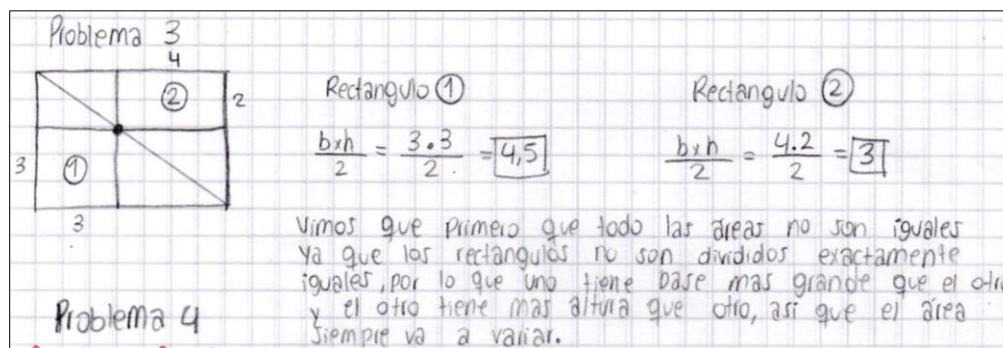 Problema 3
4
② 2
3 ①
3
Rectangulo ①
bxh/2 = 3.3/2 = 4,5
Rectangulo ②
bxh/2 = 4.2/2 = 3
Vimos que primero que todo las áreas no son iguales
ya que los rectangulos no son divididos exactamente
iguales, por lo que uno tiene base mas grande que el otro
y el otro tiene mas altura que otro, asi que el área
siempre va a variar.
Problema 4